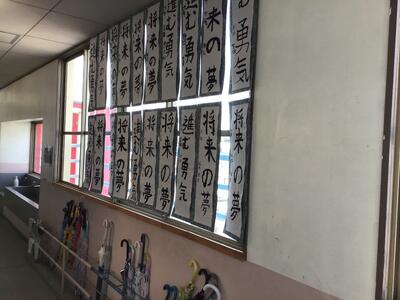 将来の夢
将来の夢
将来の夢
将来の夢
進む勇気
進む勇気
将来の夢
進む勇気
将来の夢
進む勇気
将来の夢
進む勇気
将来の夢
将来の夢